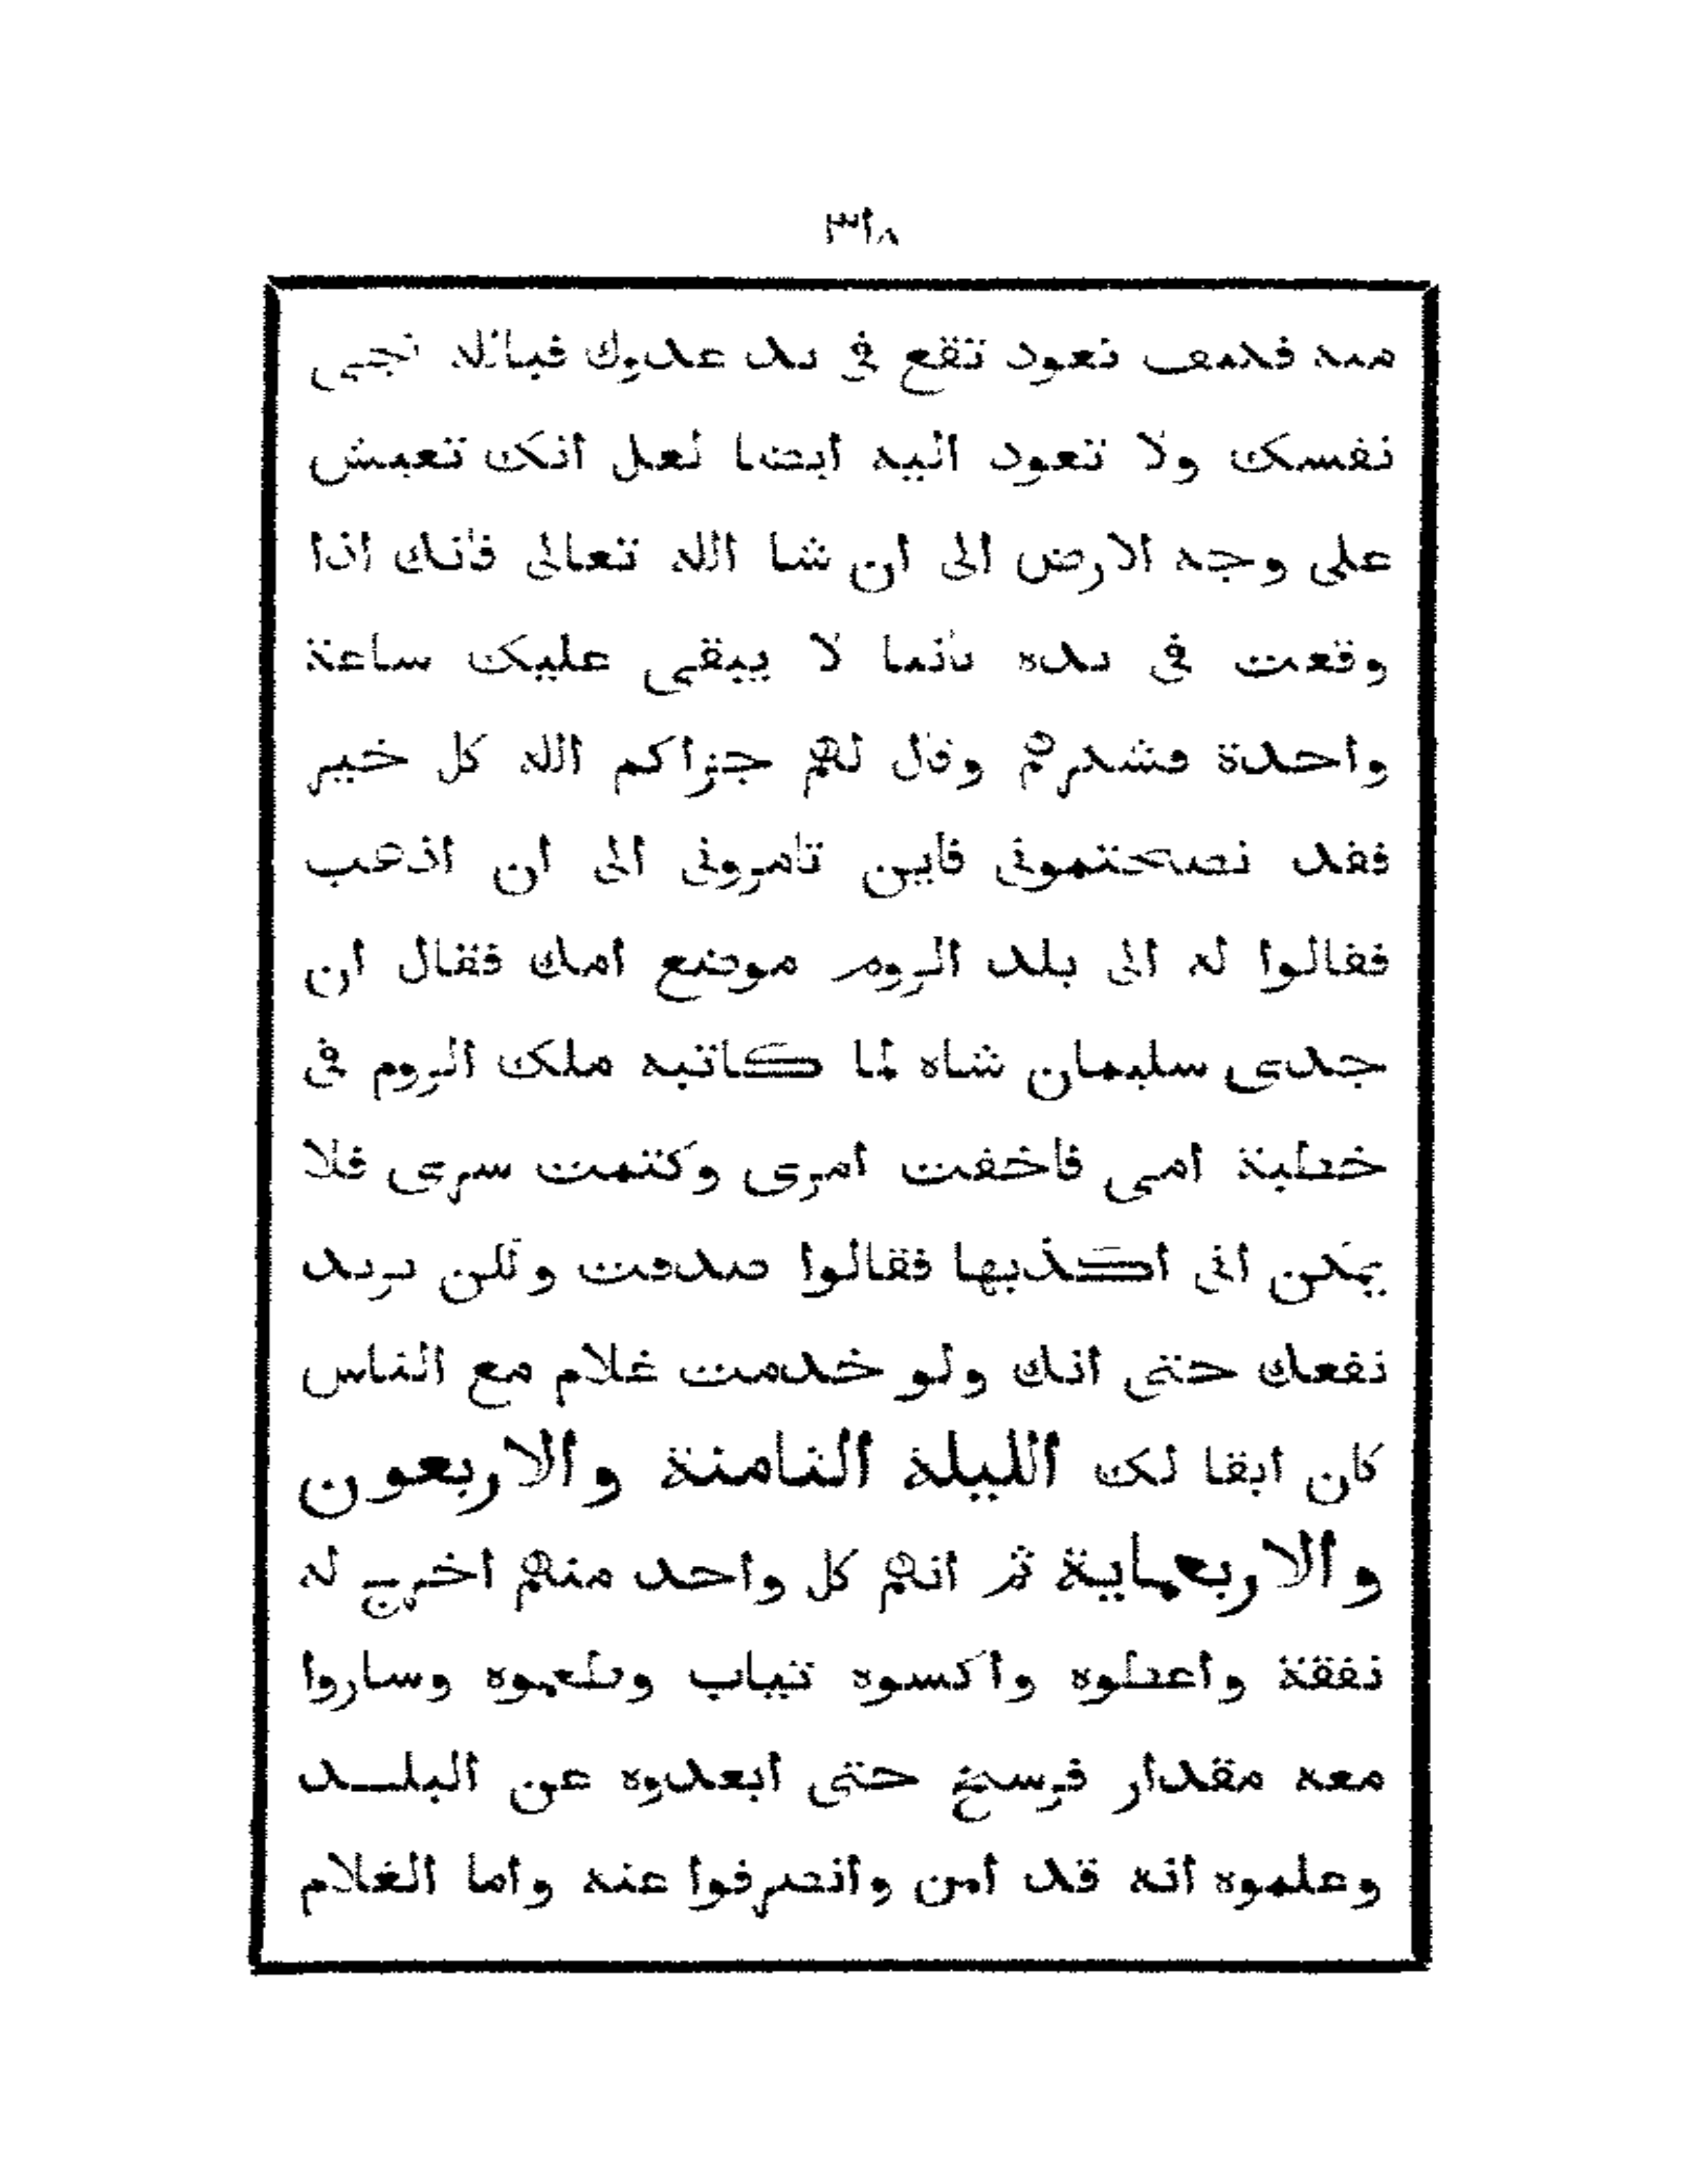 ٣١٨
منه فكيف تعود تقع فى يد عدوك فبالله نجى
نفسك ولا تعود اليه ايضا لعل انك تعيش
على وجه الارض الى ان شا الله تعالى فانك اذا
وقعت فى يده ثانيا لا يبقى عليك ساعة
واحدة فشكرهم وقال لهم جزاكم الله كل خير
فقد نصحتمونى فاين تامرونى الى ان اذهب
فقالوا له الى بلد الروم موضع امك فقال ان
جدى سليمان شاه لما كاتبه ملك الروم فى
خطبة امى فاخفت امرى وكتمت سرى فلا
يمكن انى اكذبها فقالوا صدقت ولكن نريد
نفعك حتى انك ولو خدمت غلام مع الناس
كان ابقا لك الليلة الثامنة والاربعون
والاربعماية ثم انهم كل واحد منهم اخرج له
نفقة واعطوه واكسوه ثياب وطعموه وساروا
معه مقدار فرسخ حتى ابعدوه عن البلد
وعلموه انه قد امن وانصرفوا عنه واما الغلام